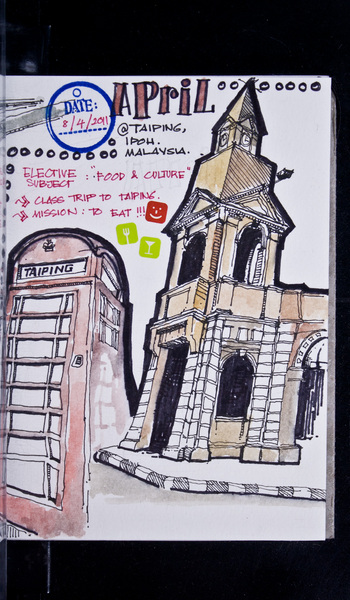 APRIL
DATE:
8/4/2011
@TAIPING,
IPOH.
MALAYSIA.
ELECTIVE : "FOOD & CULTURE"
SUBJECT
CLASS TRIP TO TAIPING.
MISSION : TO EAT !!!
TAIPING